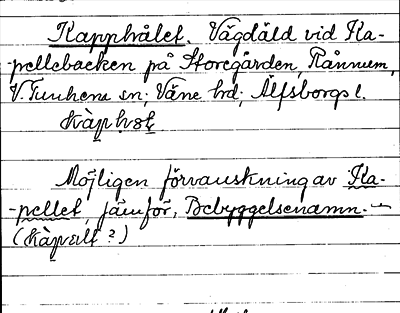 Kapphålet. Vägdäld vid Ka-
-pellebacken på Storegården, Rånnum,
V. Tunhems sn; Väne hd; Älfsborgs l.
Möjligen förvanskning av Ka-
-pellet, jämför, Bebyggelsenamn. -